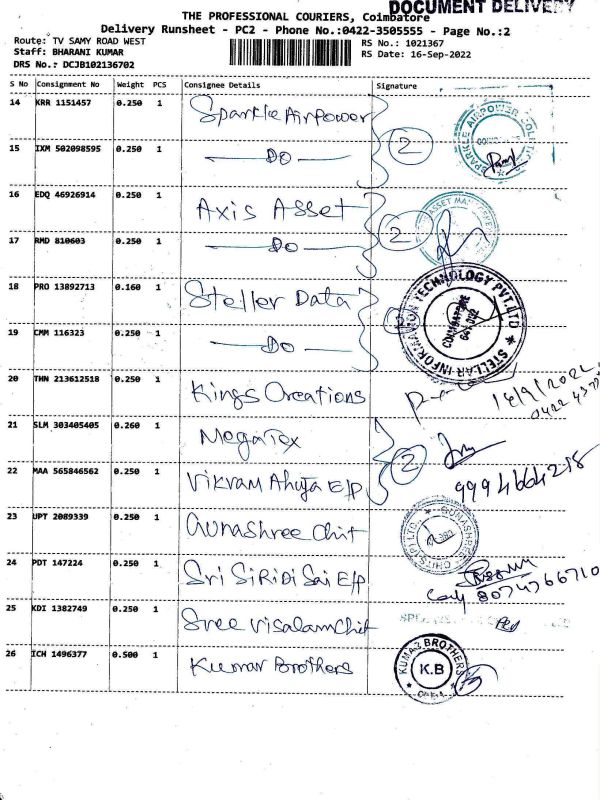 DOCUMENT DELIVERY
THE PROFESSIONAL COURIERS, Coimbatore
Delivery Runsheet - PC2 - Phone No.:0422-3505555 - Page No.:2
Route: TV SAMY ROAD WEST
RS No.: 1021367
Staff: BHARANI KUMAR
RS Date: 16-Sep-2022
DRS No.: DCJB102136702
S No Consignment No Weight PCS Consignee Details Signature
14 KRR 1151457 0.250 1 Sparkle Airpower
15 IXM 502098595 0.250 1 DO 2
SPARKLE AIRPOWER
16 EDQ 46926914 0.250 1 Axis Asset
17 RMD 810603 0.250 1 DO 2
ASSET
18 PRO 13892713 0.160 1 Steller Data
19 CMM 116323 0.250 1 DO
STELLAR INFORMATION TECHNOLOGY PVT.LTD
COIMBATORE
20 THN 213612518 0.250 1 Kings Creations
21 SLM 303405405 0.260 1 MegaTex
22 MAA 565846562 0.250 1 Vikram Ahuja E/P 2
9994664215
23 UPT 2089339 0.250 1 Gunashree Chit
GUNASHREE CHITS (P) LTD.
24 PDT 147224 0.250 1 Sri SiRiDi Sai E/P
8074766710
25 KDI 1382749 0.250 1 Sree Visalam Chit
26 ICH 1496377 0.500 1 Kumar Brothers
KUMAR BROTHERS
K.B